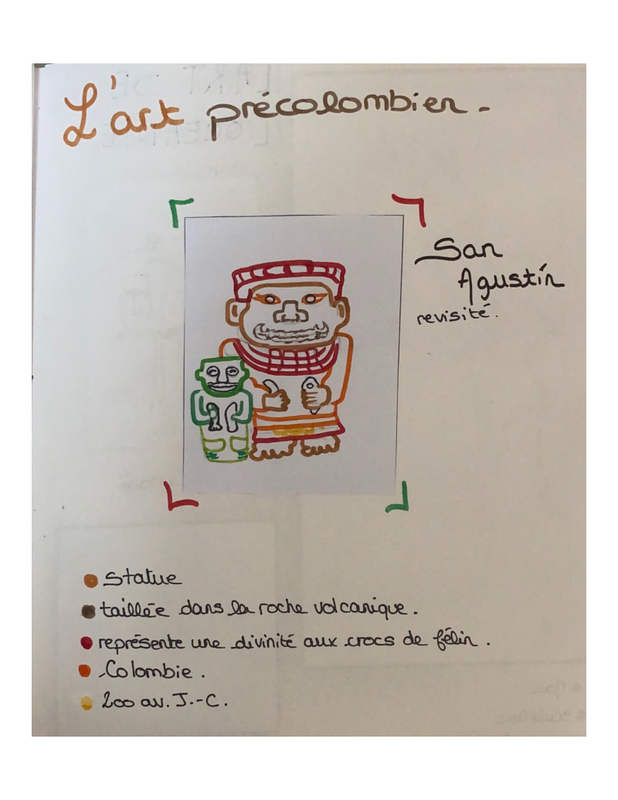 L'art précolombien.
San
Agustín
revisité.
statue
taillée dans la roche volcanique.
représente une divinité aux crocs de félin.
Colombie.
200 av. J.-C.